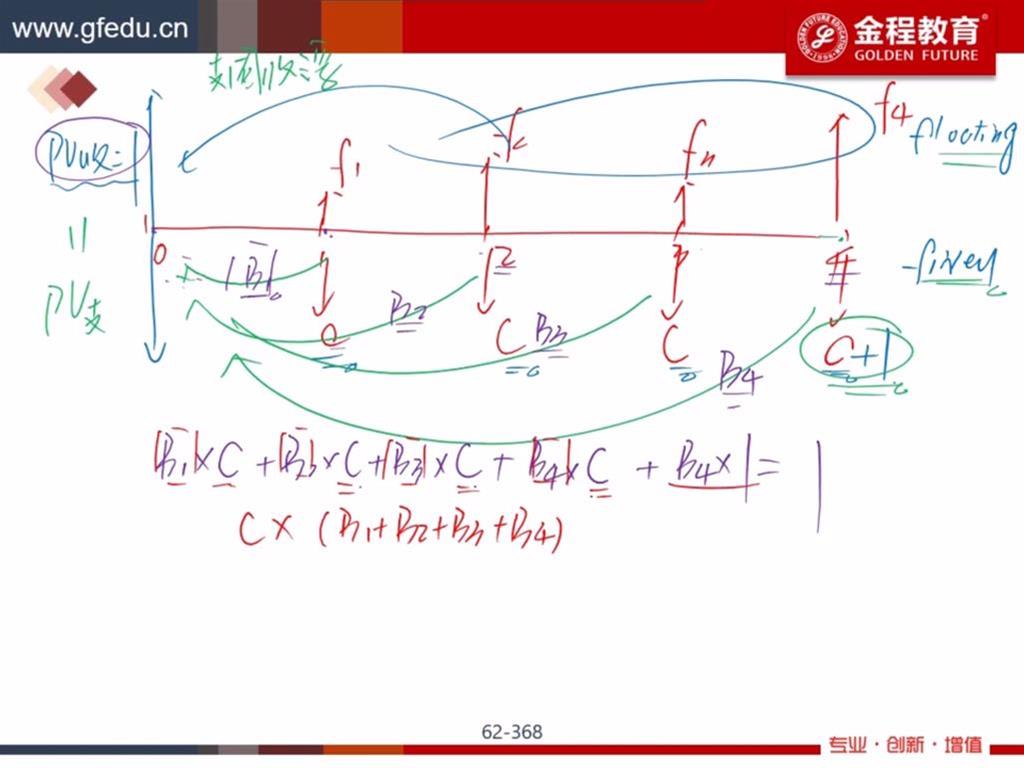 www.gfedu.cn
金程教育®
GOLDEN FUTURE
支固收浮
PV收=1
f1
f2
f3
f4
floating
1
0
2
3
4
B1
B2
B3
B4
fixed
=
PV支
C
C
C
C+1
B1×C + B2×C + B3×C + B4×C + B4×1 = 1
C×(B1+B2+B3+B4)
62-368
专业·创新·增值